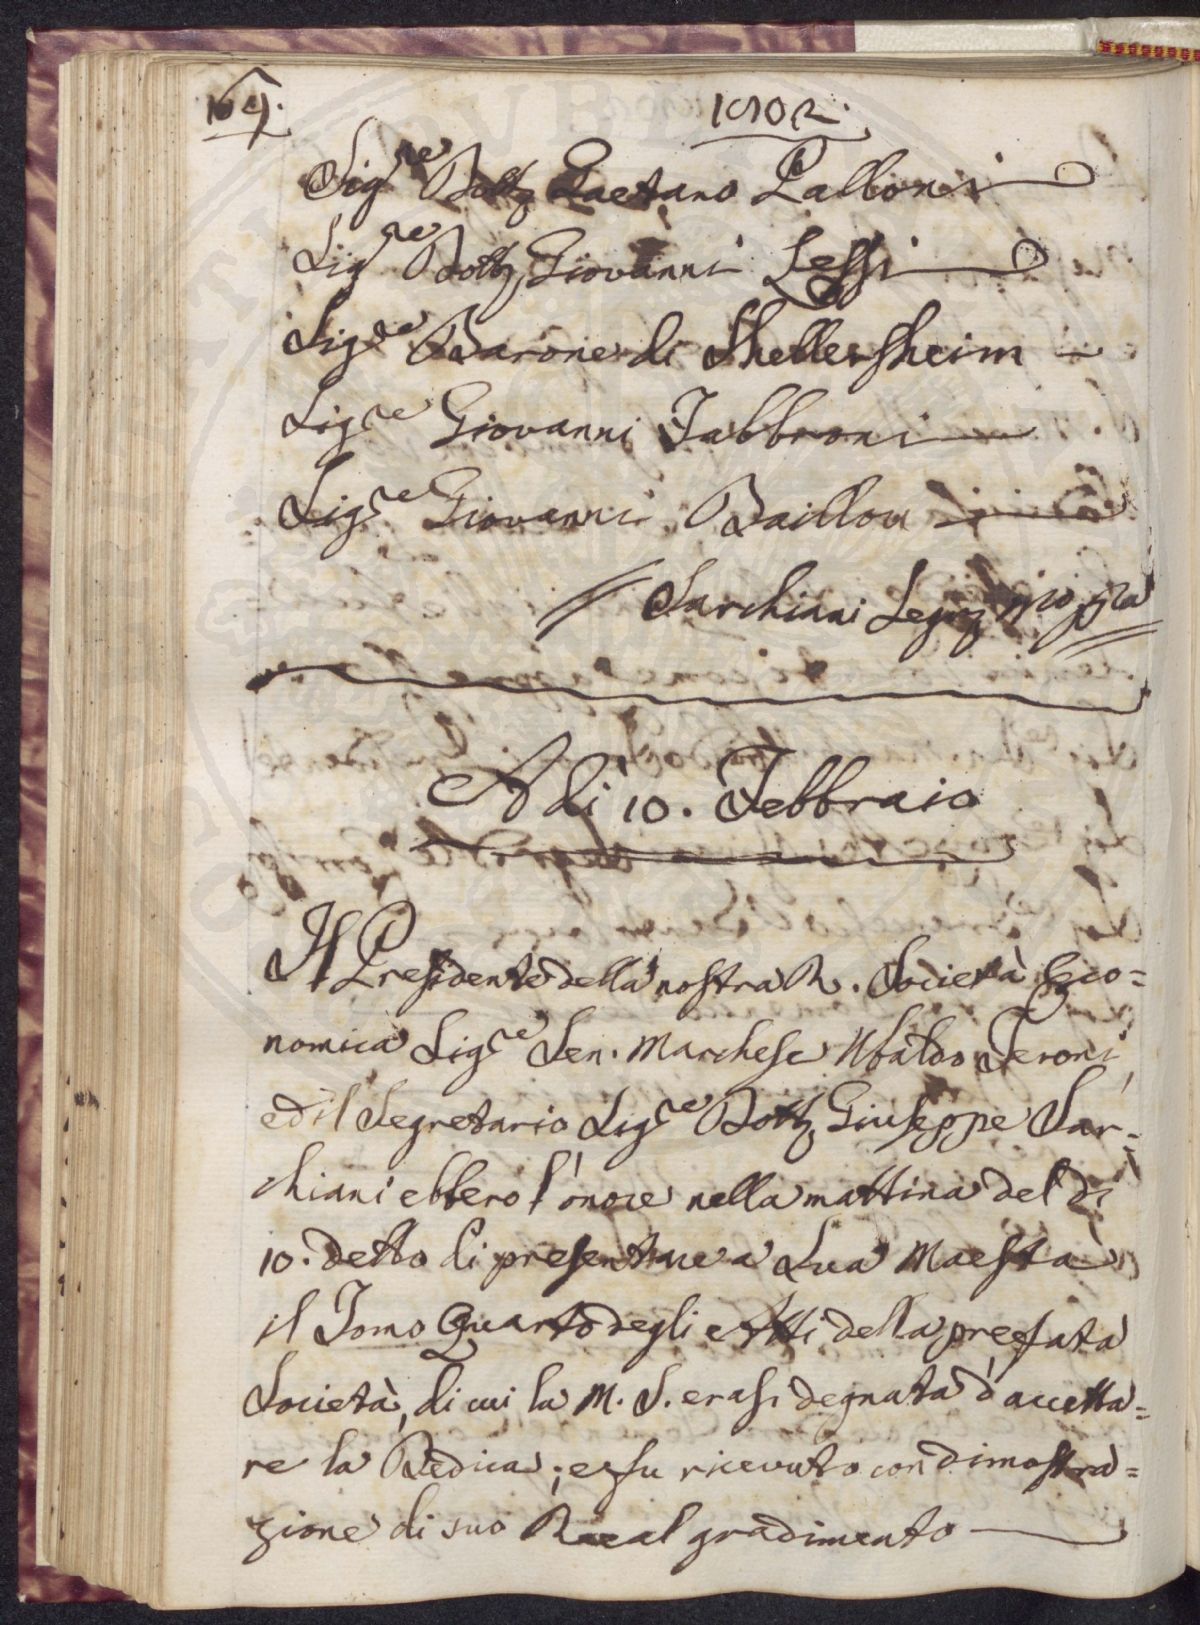 164.
1802.
Sig.re Dott. Gaetano Palloni
Sig.re Dott. Giovanni Lessi
Sig.re Barone di Shellersheim
Sig.re Giovanni Fabbroni
Sig.re Giovanni Baillou
Sarchiani Seg.
A dì 10. Febbraio
Il Presidente della nostra R. Società Eco=
nomica Sig.re Sen. Marchese Ubaldo Feroni,
ed il Segretario Sig.re Dott. Giuseppe Sar=
chiani ebbero l'onore nella mattina del dì
10. detto di presentare a Sua Maestà
il Tomo Quarto degli Atti della prefata
Società, di cui la M. S. erasi degnata d'accetta=
re la Dedica; e fu ricevuto con dimostra=
zione di suo Real gradimento